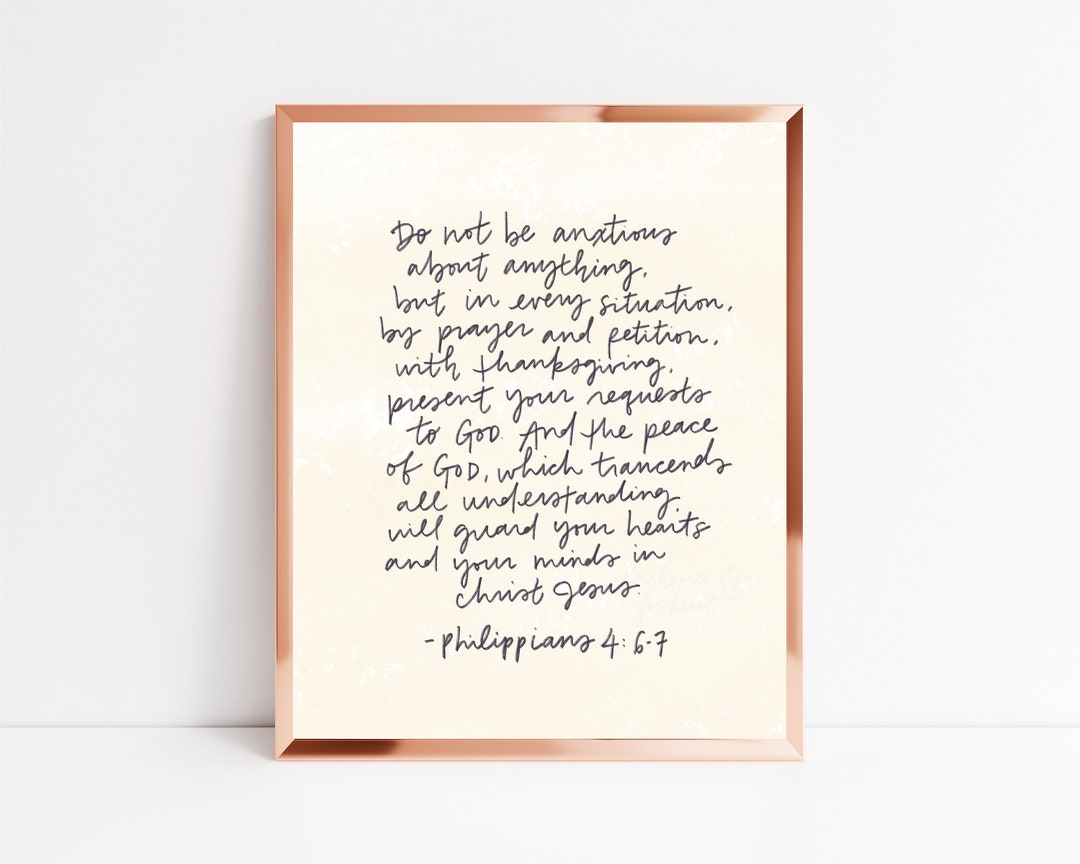 Do not be anxious
about anything,
but in every situation,
by prayer and petition,
with thanksgiving,
present your requests
to GOD. And the peace
of GOD, which trancends
all understanding,
will guard your hearts
and your minds in
christ Jesus.
-philippians 4:6-7